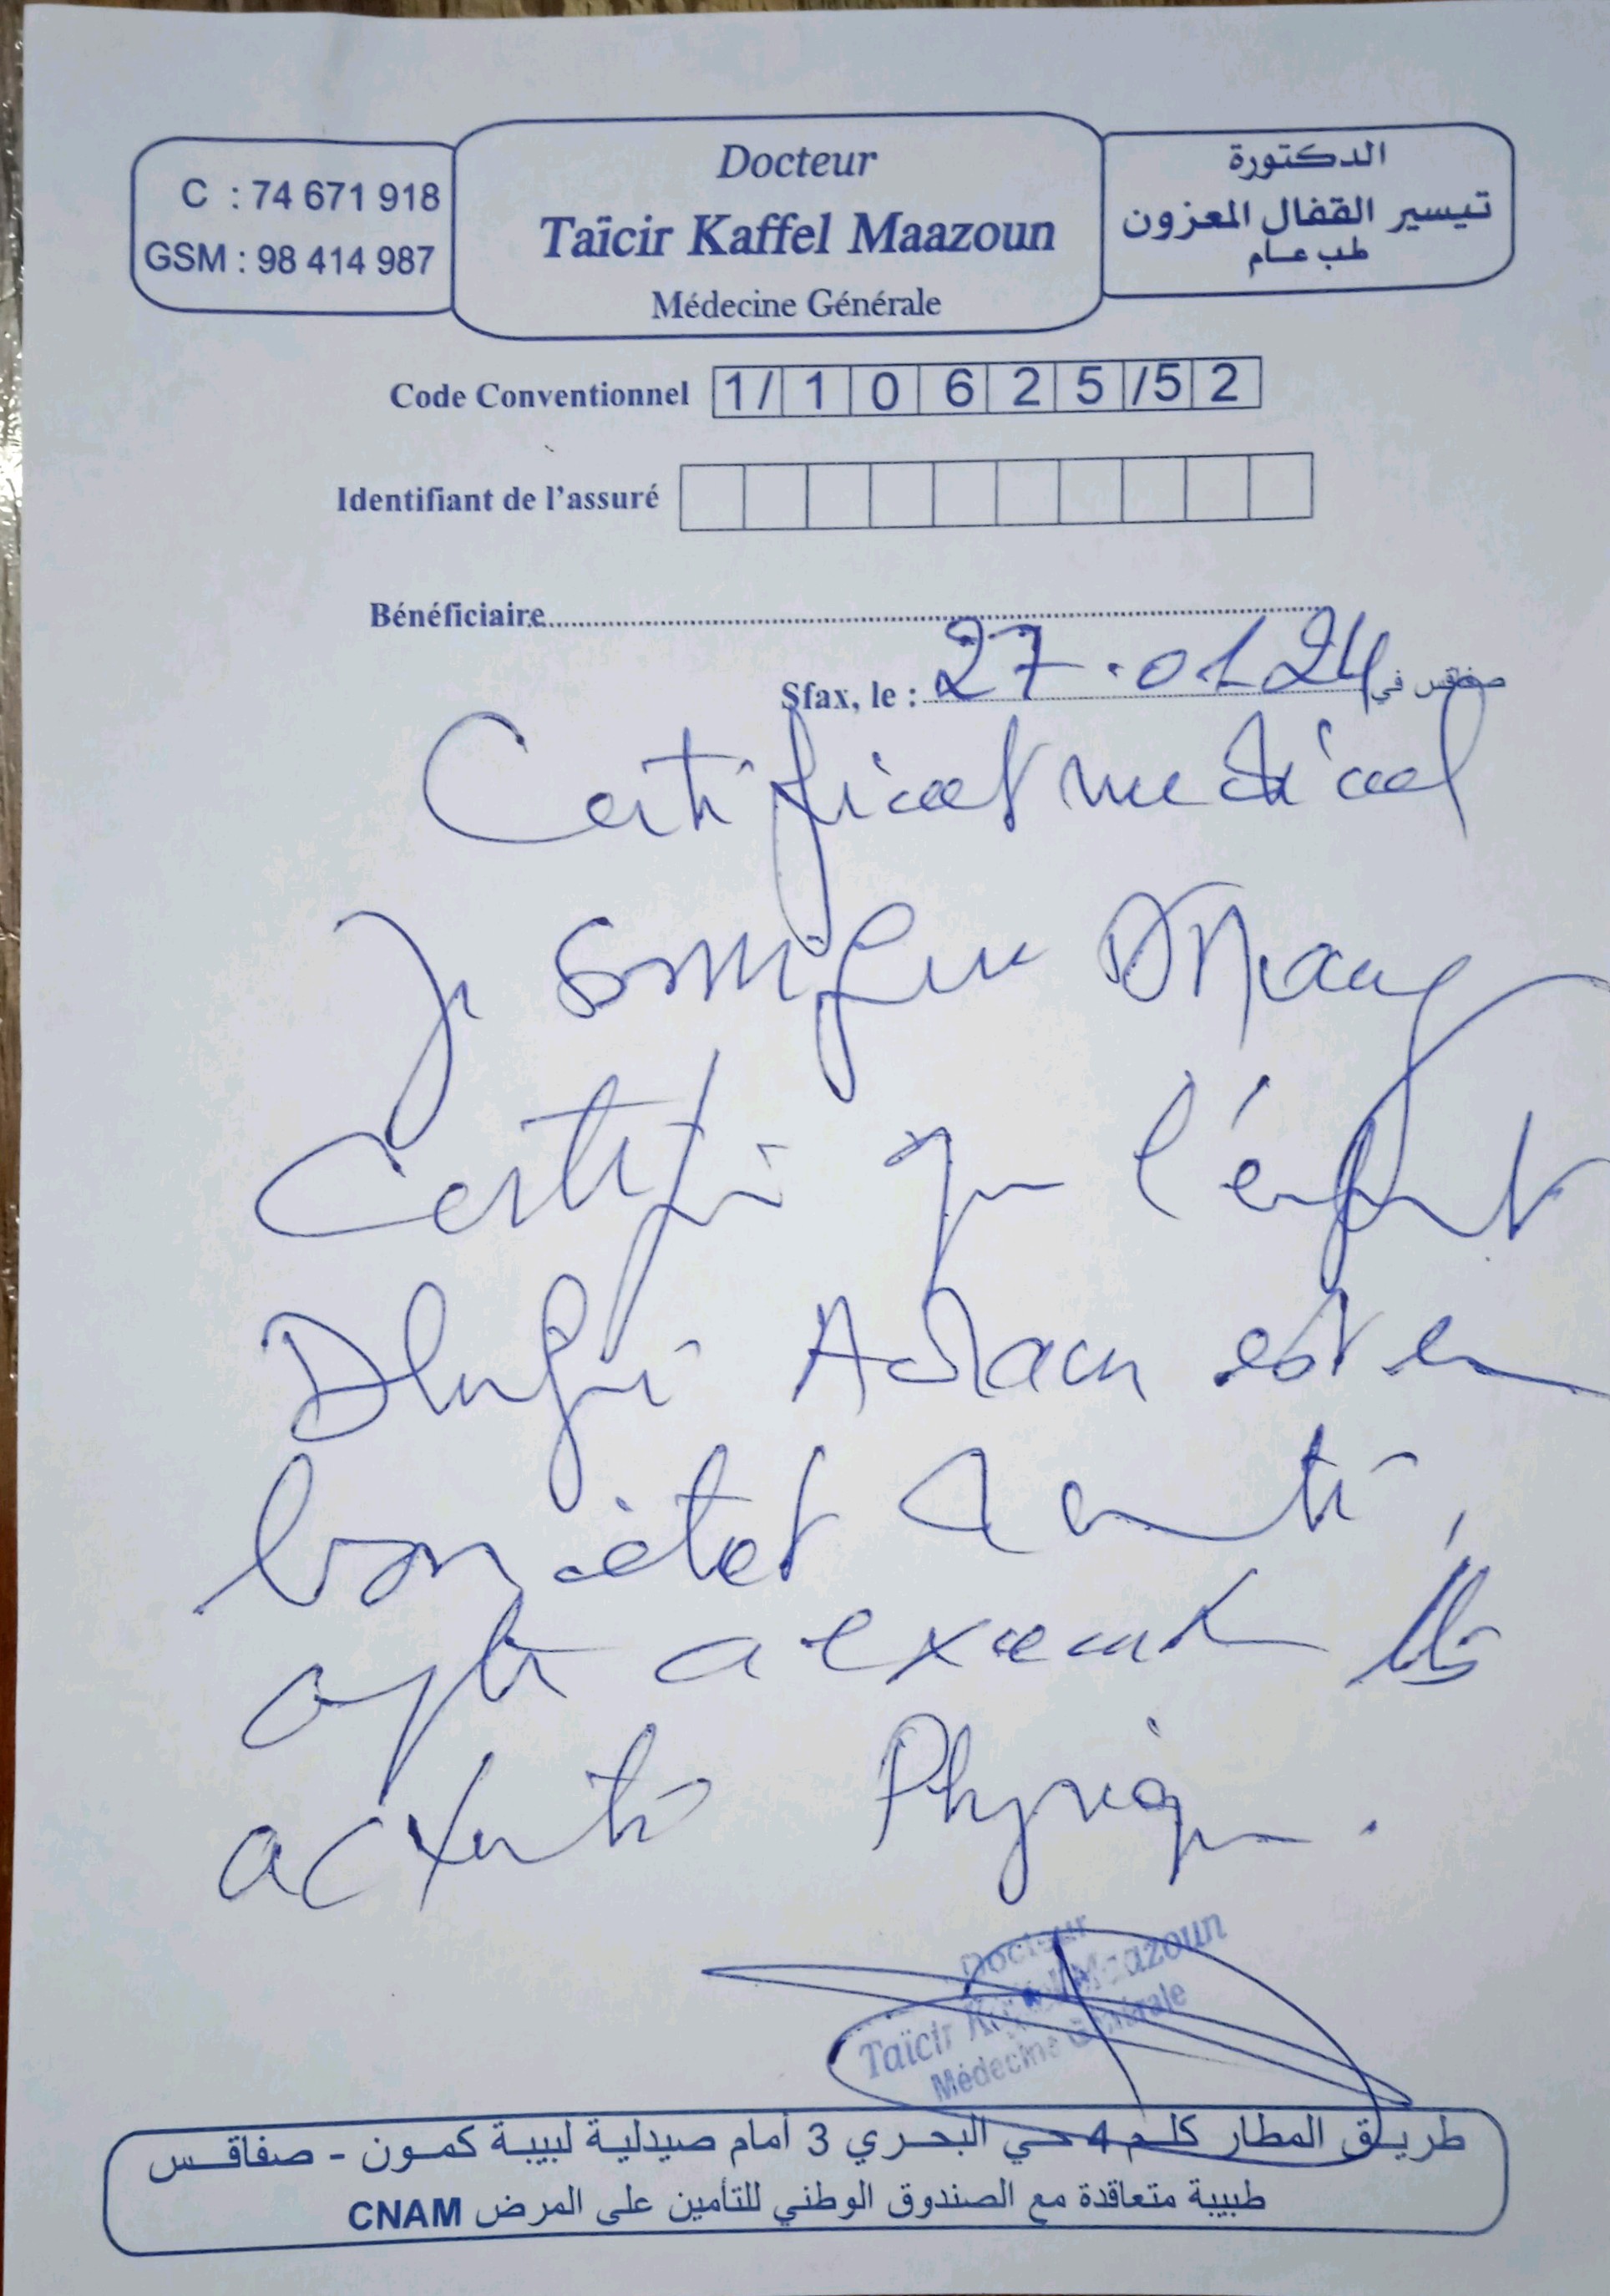 C : 74 671 918
GSM : 98 414 987
Docteur
Taïcir Kaffel Maazoun
Médecine Générale
الدكتورة
تيسير القفال المعزون
طب عام
Code Conventionnel 1/ 1 0 6 2 5 /5 2
Identifiant de l'assuré
Bénéficiaire
Sfax, le : 27.01.24 صفاقس في
Certificat medical
Je soussigne Dr
Certifie que l'enfant
est en
bon état santé,
apte a executer
activité Physique.
Docteur
Taïcir Kaffel Maazoun
Médecine Générale
طريق المطار كلم 4 حي البحري 3 أمام صيدلية لبيبة كمون - صفاقس
طبيبة متعاقدة مع الصندوق الوطني للتأمين على المرض CNAM